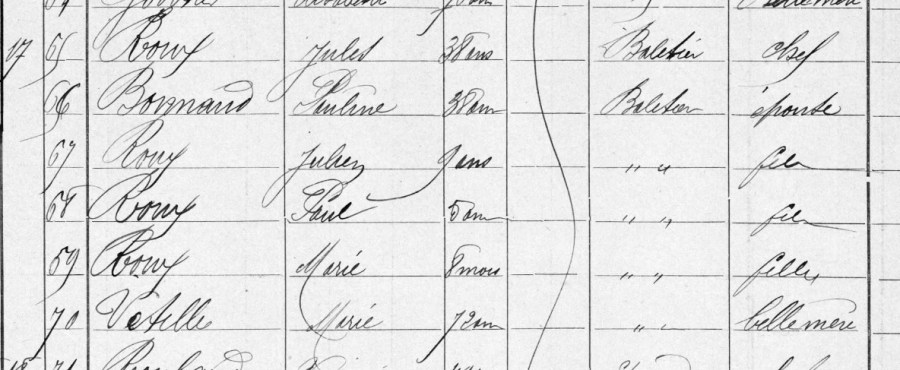 17 65 Roux Jules 38 ans Baletier chef
66 Bonnaud Pauline 38 ans Baletier épouse
67 Roux Julien 9 ans " " fils
68 Roux Paul 5 ans " " fils
69 Roux Marie 8 mois " " fille
70 Vetille Marie 72 ans " " belle mère